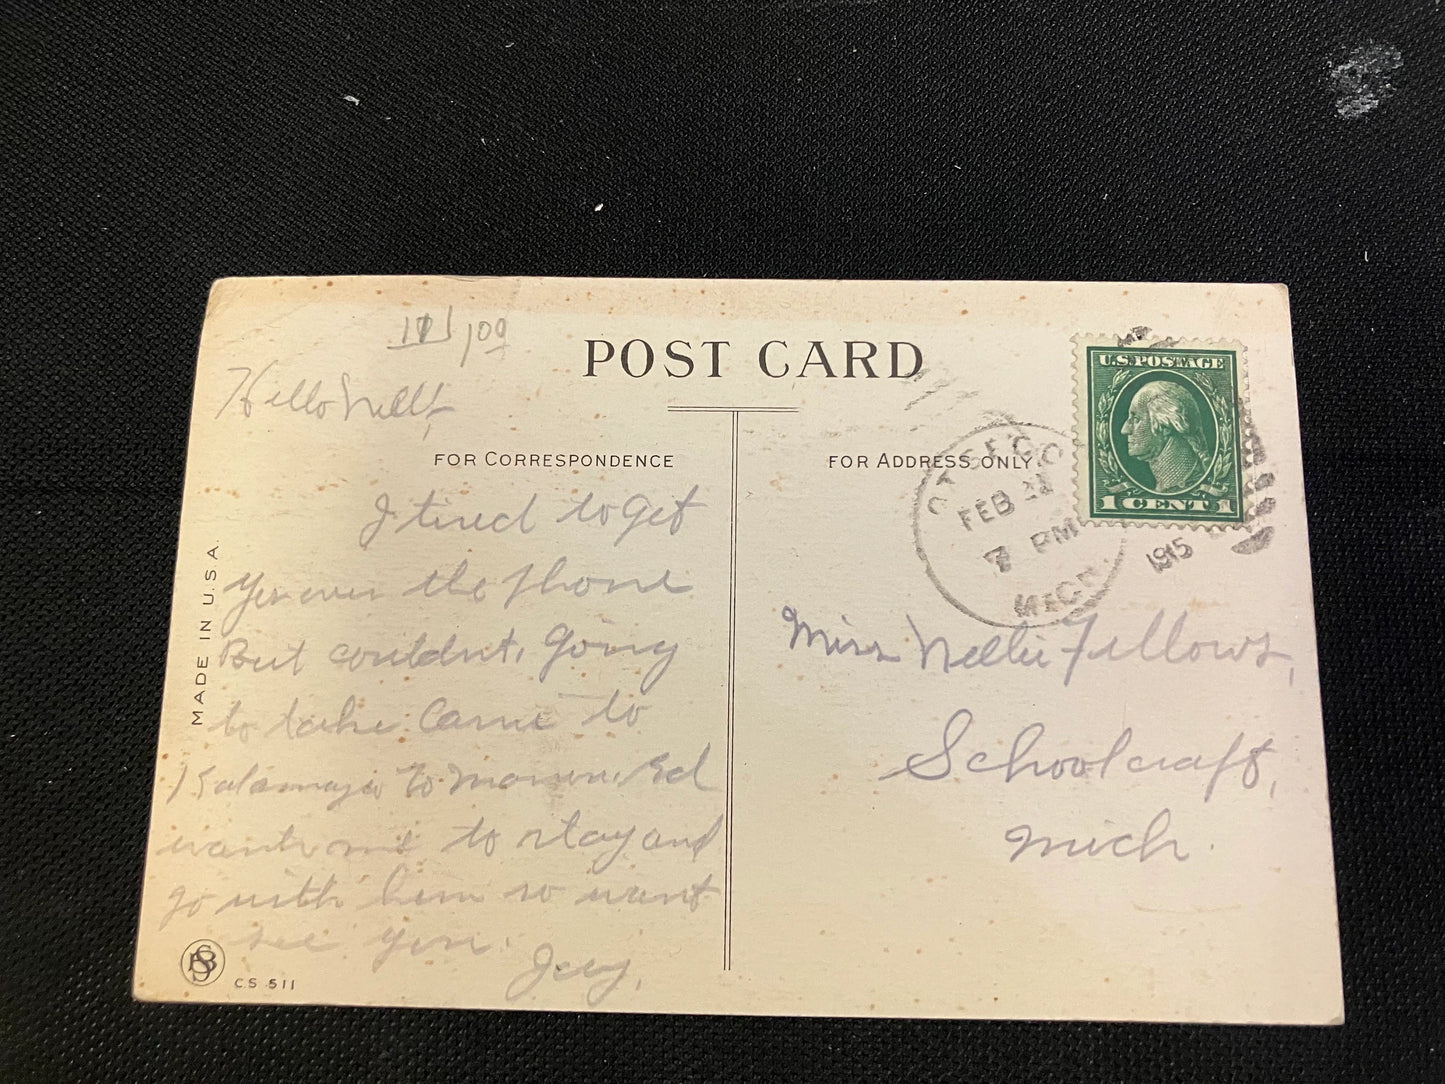 1.00
POST CARD
Hello Nell,
FOR CORRESPONDENCE
I tried to get
you over the phone
But couldnt, Going
to take Came to
Kalamazoo to morrow. Ed
wants me to stay and
go with him so wont
see you.
MADE IN U.S.A.
C.S. 511
FOR ADDRESS ONLY
U.S. POSTAGE
1 CENT 1
OTSEGO
FEB
7 PM
1915
MICH.
Miss Nellie Fellows,
Schoolcraft,
Mich.